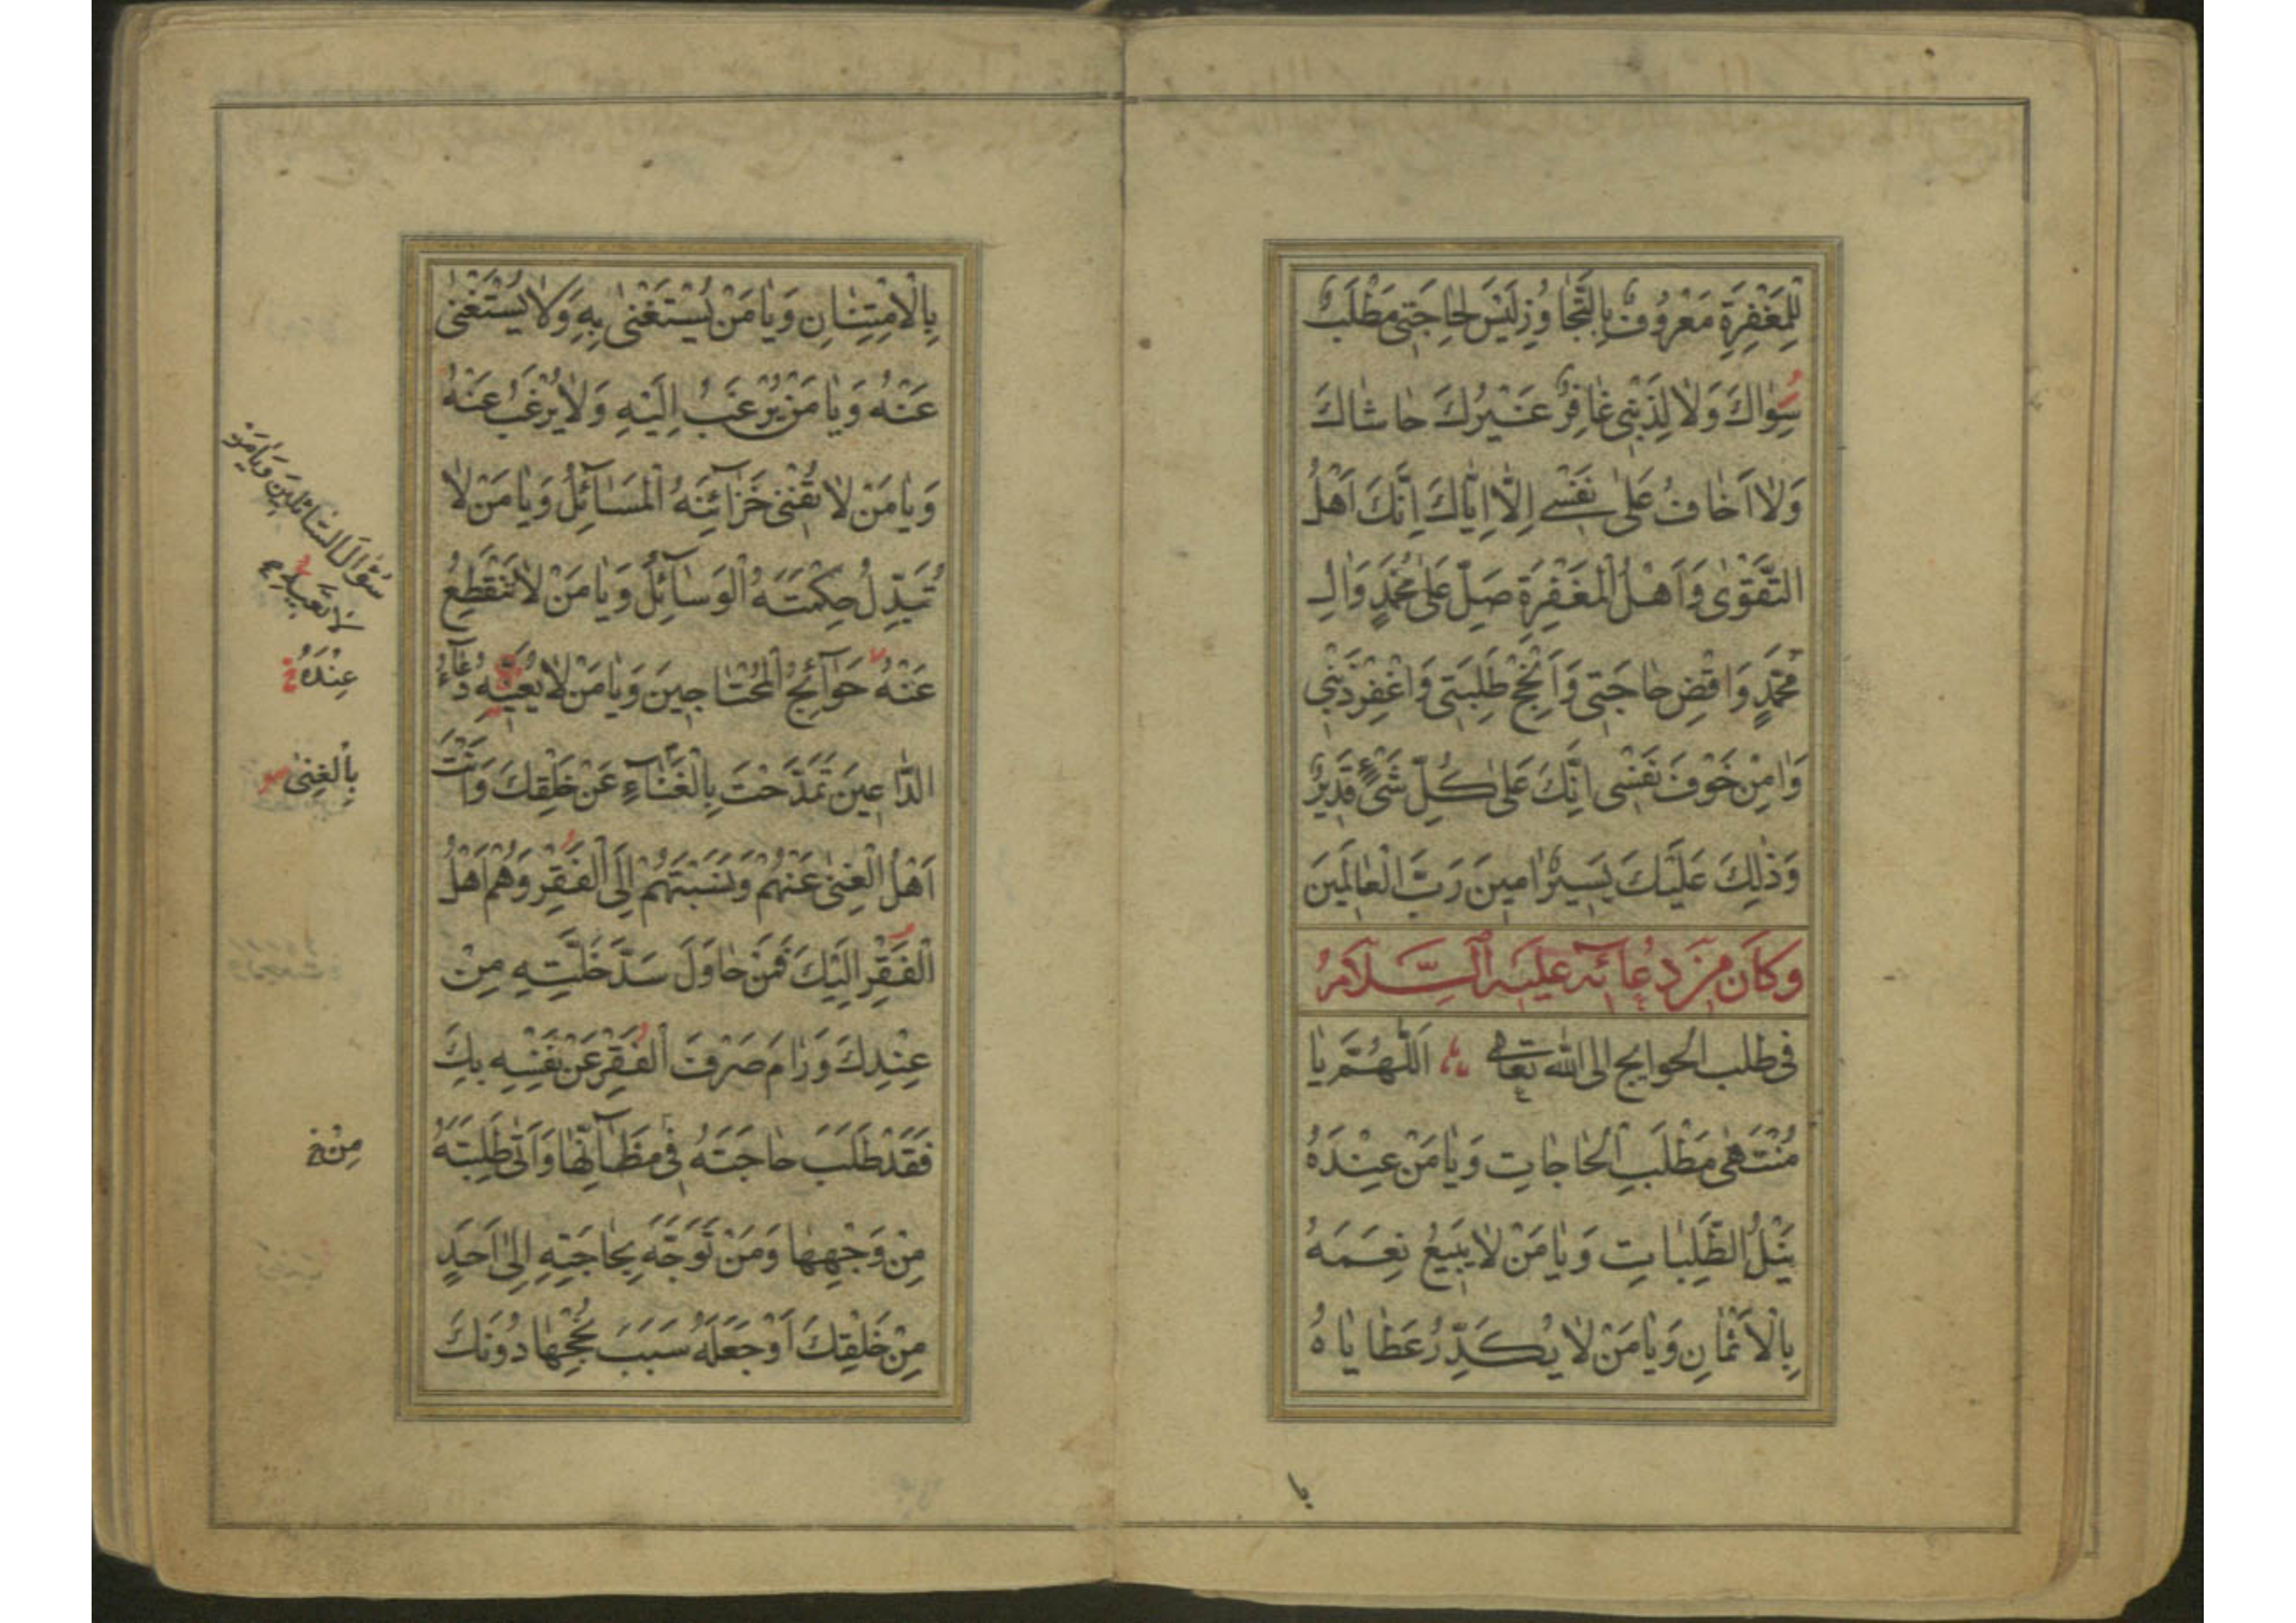 لِلْمَغْفِرَةِ مَعْرُوفٌ بِالتَّجَاوُزِ لَيْسَ لِحَاجَتِى مَطْلَبٌ
سِوَاكَ وَلَا لِذَنْبِى غَافِرٌ غَيْرُكَ حَاشَاكَ
وَلَا اَخَافُ عَلَى نَفْسِے اِلَّا اِيَّاكَ اِنَّكَ اَهْلُ
التَّقْوٰى وَاَهْلُ الْمَغْفِرَةِ صَلِّ عَلٰى مُحَمَّدٍ وَاٰلِ
مُحَمَّدٍ وَاقْضِ حَاجَتِى وَاَنْجِحْ طَلِبَتِى وَاغْفِرْ ذَنْبِى
وَاٰمِنْ خَوْفَ نَفْسِى اِنَّكَ عَلٰى كُلِّ شَىْءٍ قَدِيْرٌ
وَذٰلِكَ عَلَيْكَ يَسِيْرٌ اٰمِينَ رَبَّ الْعَالَمِينَ
وَكَانَ مِنْ دُعَائِهِ عَلَيْهِ السَّلَامُ
فى طلب الحوايج الى الله تعالى اَللّٰهُمَّ يَا
مُنْتَهٰى مَطْلَبِ الْحَاجَاتِ وَيَا مَنْ عِنْدَهُ
نَيْلُ الطَّلِبَاتِ وَيَا مَنْ لَا يَبِيعُ نِعَمَهُ
بِالْاَثْمَانِ وَيَا مَنْ لَا يُكَدِّرُ عَطَايَاهُ
با
بِالْاِمْتِنَانِ وَيَا مَنْ يُسْتَغْنٰى بِهِ وَلَا يُسْتَغْنٰى
عَنْهُ وَيَا مَنْ يُرْغَبُ اِلَيْهِ وَلَا يُرْغَبُ عَنْهُ
وَيَا مَنْ لَا تُفْنِى خَزَآئِنَهُ الْمَسَآئِلُ وَيَا مَنْ لَا
تُبَدِّلُ حِكْمَتَهُ الْوَسَآئِلُ وَيَا مَنْ لَا تَنْقَطِعُ
عَنْهُ حَوَآئِجُ الْمُحْتَاجِينَ وَيَا مَنْ لَا يُعَنِّيهِ دُعَآءُ
الدَّاعِينَ تَمَدَّحْتَ بِالْغَنَآءِ عَنْ خَلْقِكَ وَاَنْتَ
اَهْلُ الْغِنٰى عَنْهُمْ وَنَسَبْتَهُمْ اِلَى الْفَقْرِ وَهُمْ اَهْلُ
الْفَقْرِ اِلَيْكَ فَمَنْ حَاوَلَ سَدَّ خَلَّتِهِ مِنْ
عِنْدِكَ وَرَامَ صَرْفَ الْفَقْرِ عَنْ نَفْسِهِ بِكَ
فَقَدْ طَلَبَ حَاجَتَهُ فِى مَظَآنِّهَا وَاَتٰى طَلِبَتَهُ
مِنْ وَجْهِهَا وَمَنْ تَوَجَّهَ بِحَاجَتِهِ اِلٰى اَحَدٍ
مِنْ خَلْقِكَ اَوْ جَعَلَهُ سَبَبَ نُجْحِهَا دُونَكَ
سُؤَالُ السَّائِلِينَ وَيَا مَنْ
عِنْدَهُ خ
بِالْغِنٰى
مِنْ خ